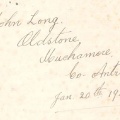 John Long.
Oldstone,
Muckamore,
Co. Antr
Jan 20th 19